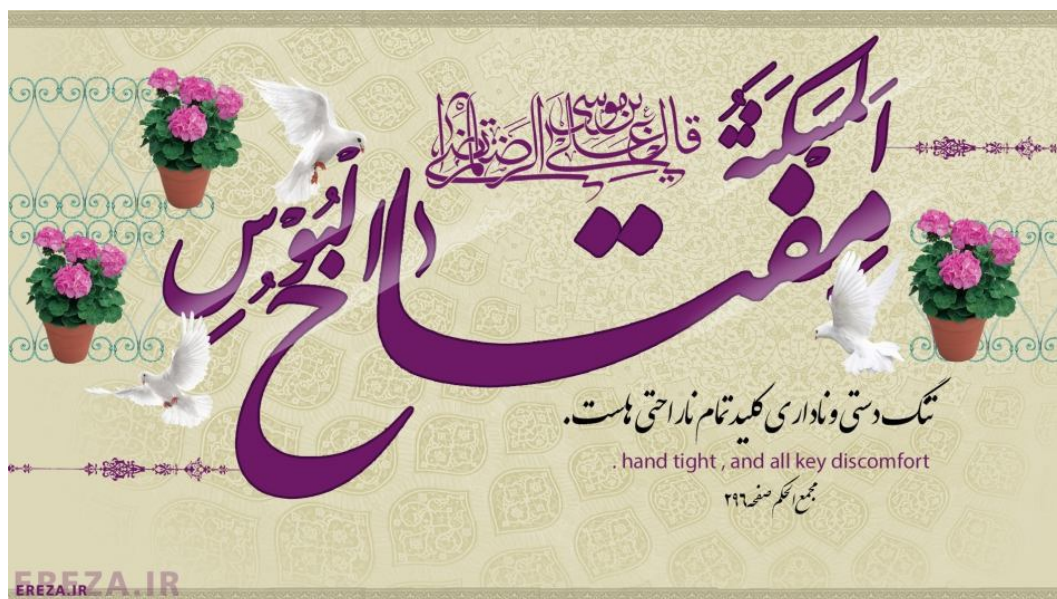 قال علی بن موسی الرضا
اَلمَسکَنَةُ
مِفتاحُ البُؤسِ
تنگ دستی و ناداری کلید تمام ناراحتی هاست.
. hand tight , and all key discomfort
مجمع الحکم صفحه ۲۹۶
EREZA.IR
EREZA.IR